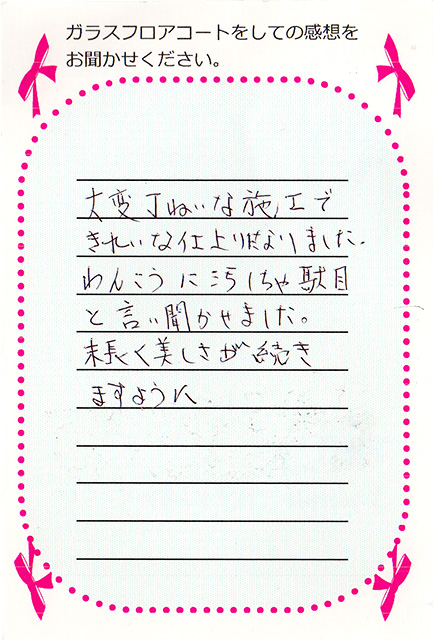 ガラスフロアコートをしての感想を
お聞かせください。
大変丁ねいな施工で
きれいな仕上りになりました.
わんこうに汚しちゃ駄目
と言い聞かせました。
末長く美しさが続き
ますように